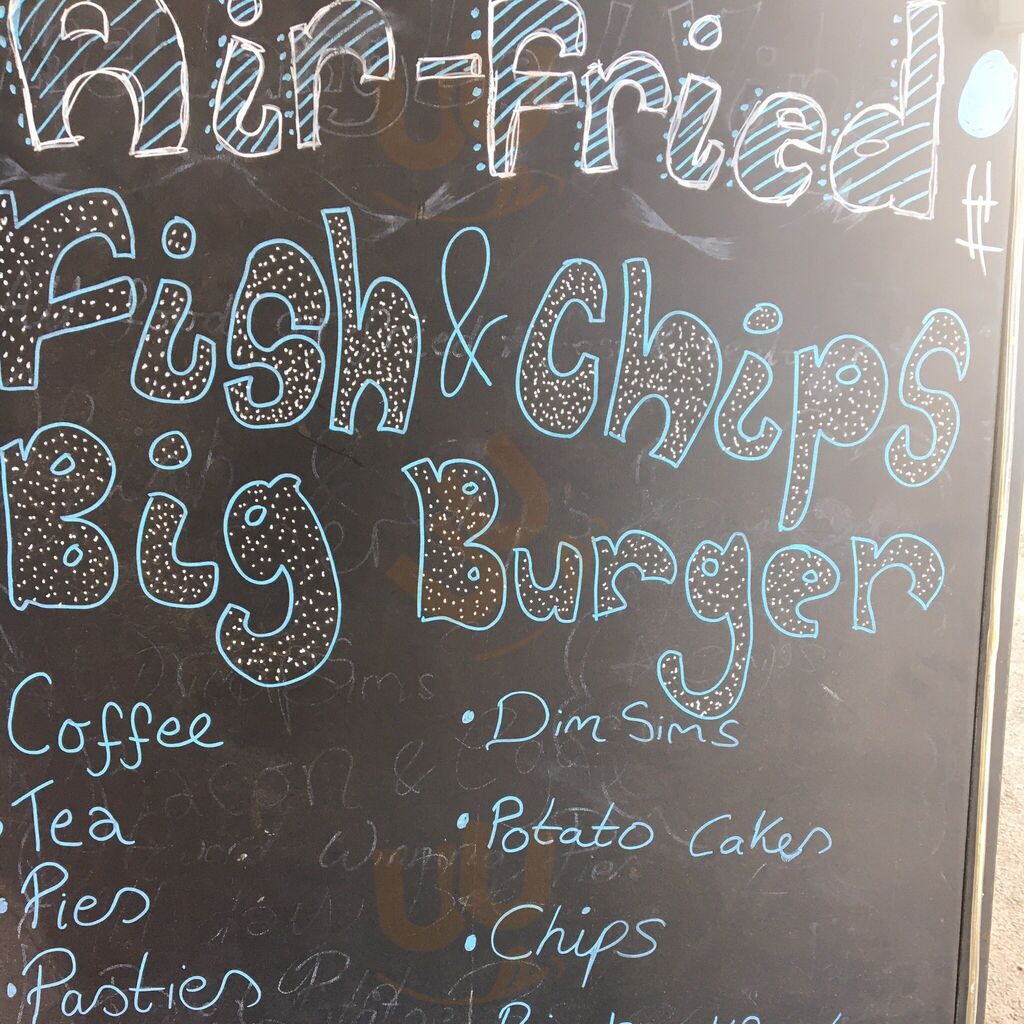 Air-Fried
Fish & Chips
Big Burger
Coffee
• Dim Sims
• Tea
• Potato Cakes
• Pies
• Chips
• Pasties